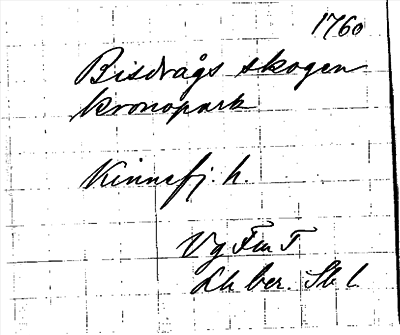 1760
Bisdrågs skogen
kronopark
Kinnefj. h.
Vg Fm T
Lk ber. Sk l.